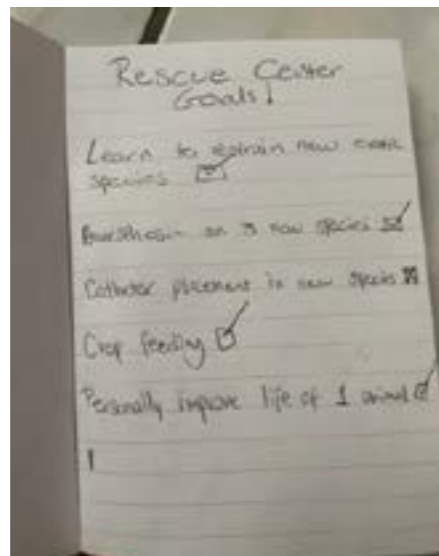 Rescue Center
Goals!
Learn to restrain new exotic
species
Anaesthesia on 3 new species
Catheter placement in new species
Crop feeding
Personally improve life of 1 animal